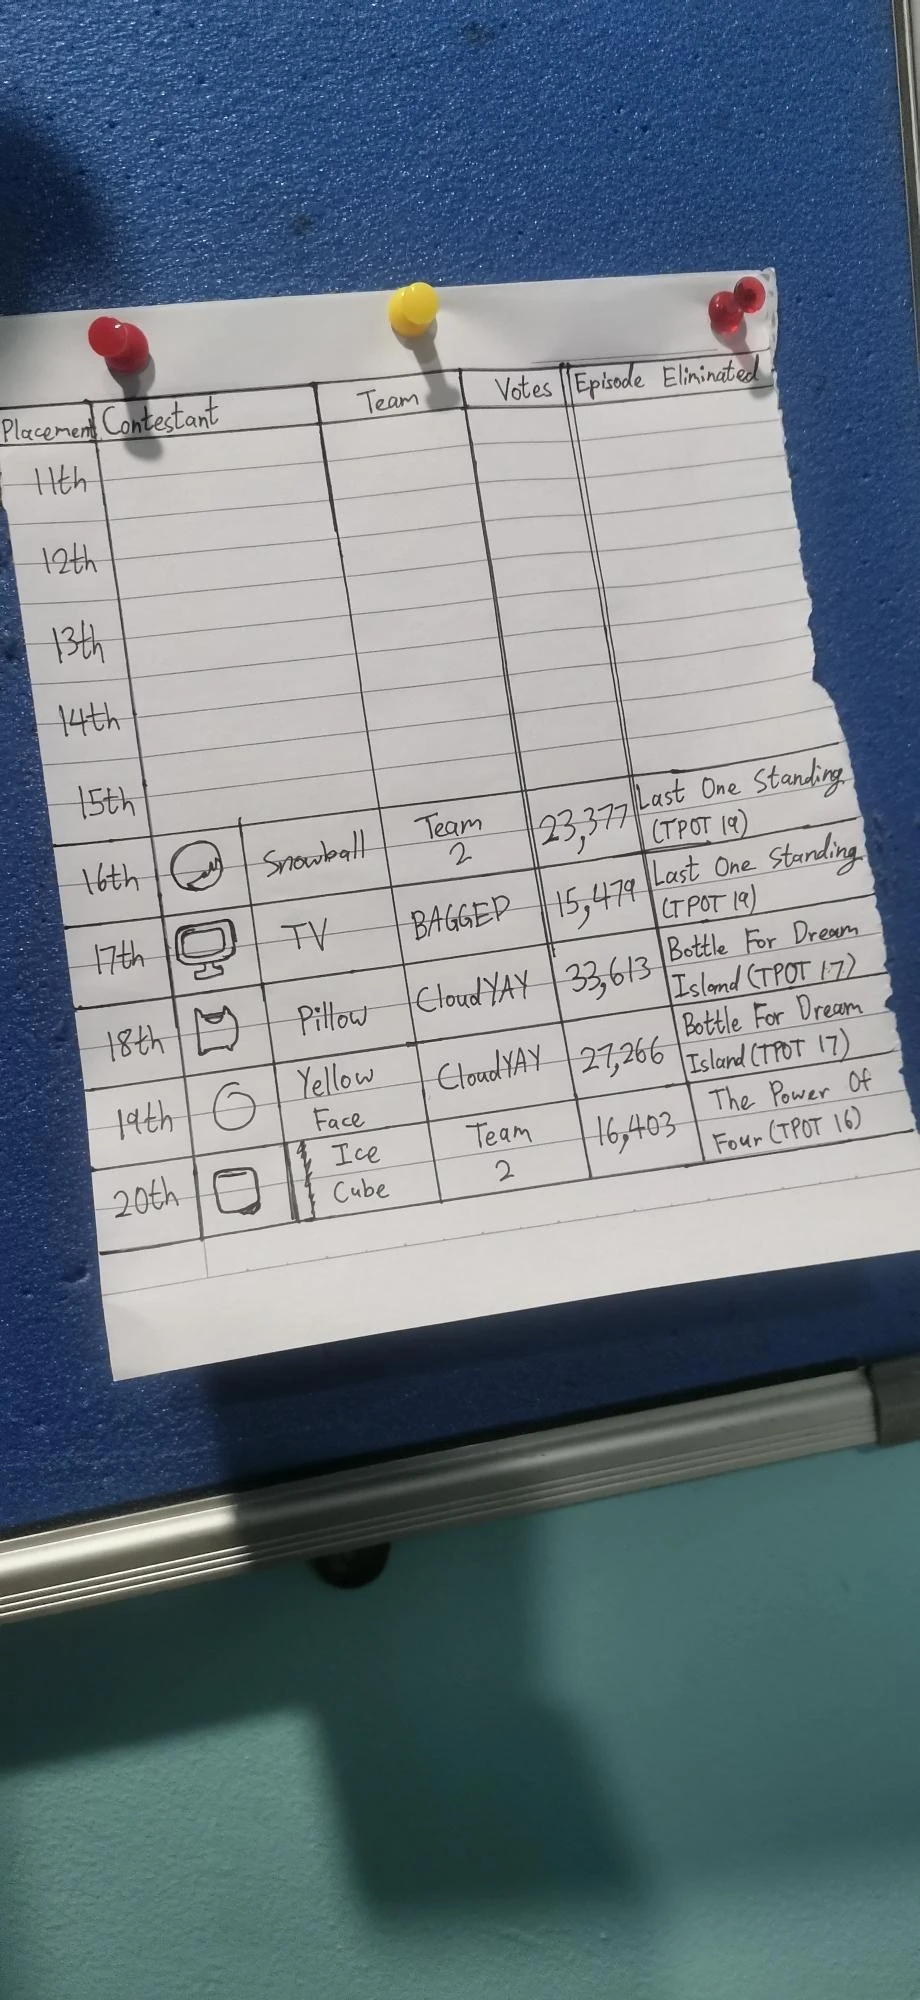 Placement Contestant Team Votes Episode Eliminated
11th
12th
13th
14th
15th
16th Snowball Team 2 23,377 Last One Standing (TPOT 19)
17th TV BAGGED 15,479 Last One Standing (TPOT 19)
18th Pillow CloudYAY 33,613 Bottle For Dream Island (TPOT 17)
19th Yellow Face CloudYAY 27,266 Bottle For Dream Island (TPOT 17)
20th Ice Cube Team 2 16,403 The Power Of Four (TPOT 16)